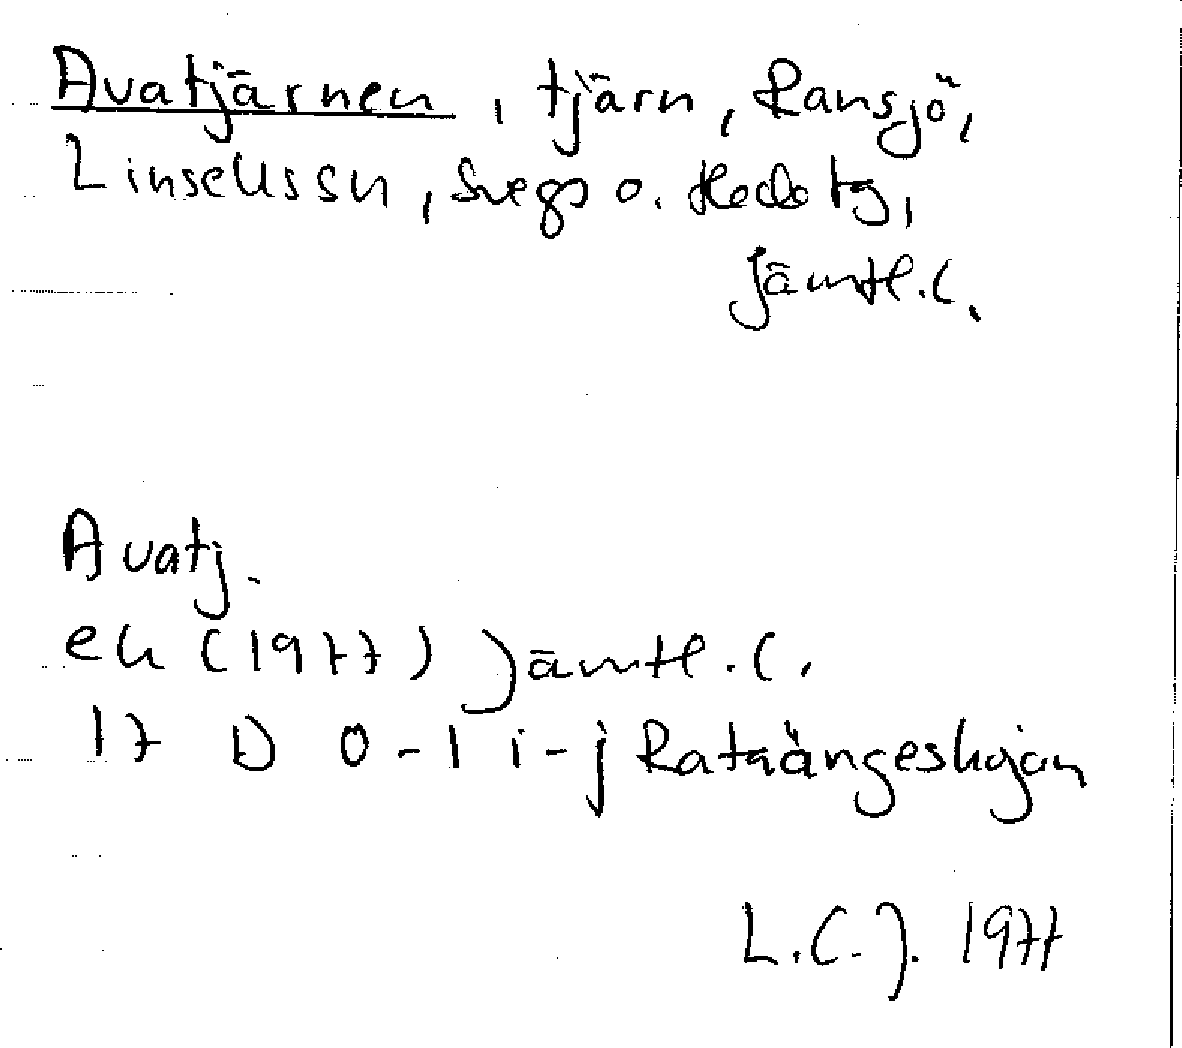 Avatjärnen, tjärn, Ransjö,
Linsell ssn, Svegs o. Heds tg,
Jämtl. l.
Avatj.
ek (1977) Jämtl. l.
17 D 0-1 i-j Rataängeskojan
L.C.J. 1977